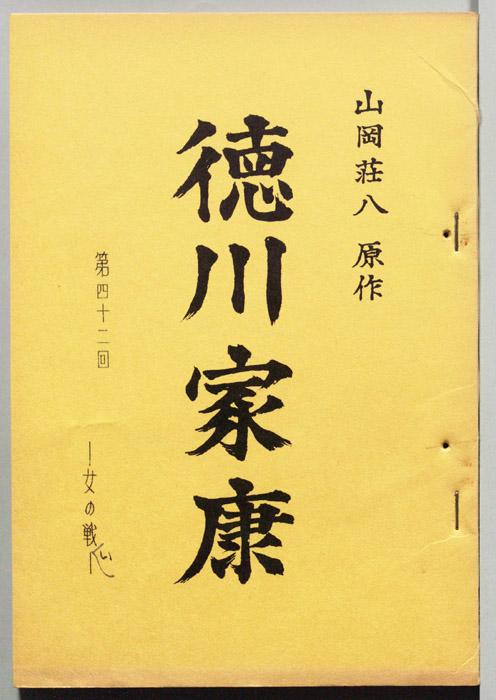 山岡荘八 原作
徳川家康
第四十二回
―女の戦